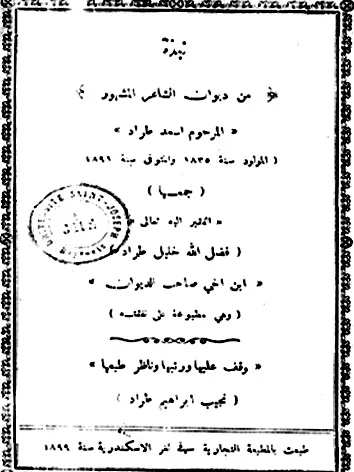 نبذة
من ديوان الشاعر المشهور
« المرحوم اسعد طراد »
( المولود سنة ١٨٣٥ والمتوفى سنة ١٨٩١ )
( جمعها )
« الفقير اليه تعالى »
( فضل الله خليل طراد )
« ابن اخي صاحب الديوان »
( وهي مطبوعة على نفقته )
« وقف عليها ورتبها وناظر طبعها »
( نجيب ابراهيم طراد )
طبعت بالمطبعة التجارية في ثغر الاسكندرية سنة ١٨٩٩
SAINT-JOSEPH